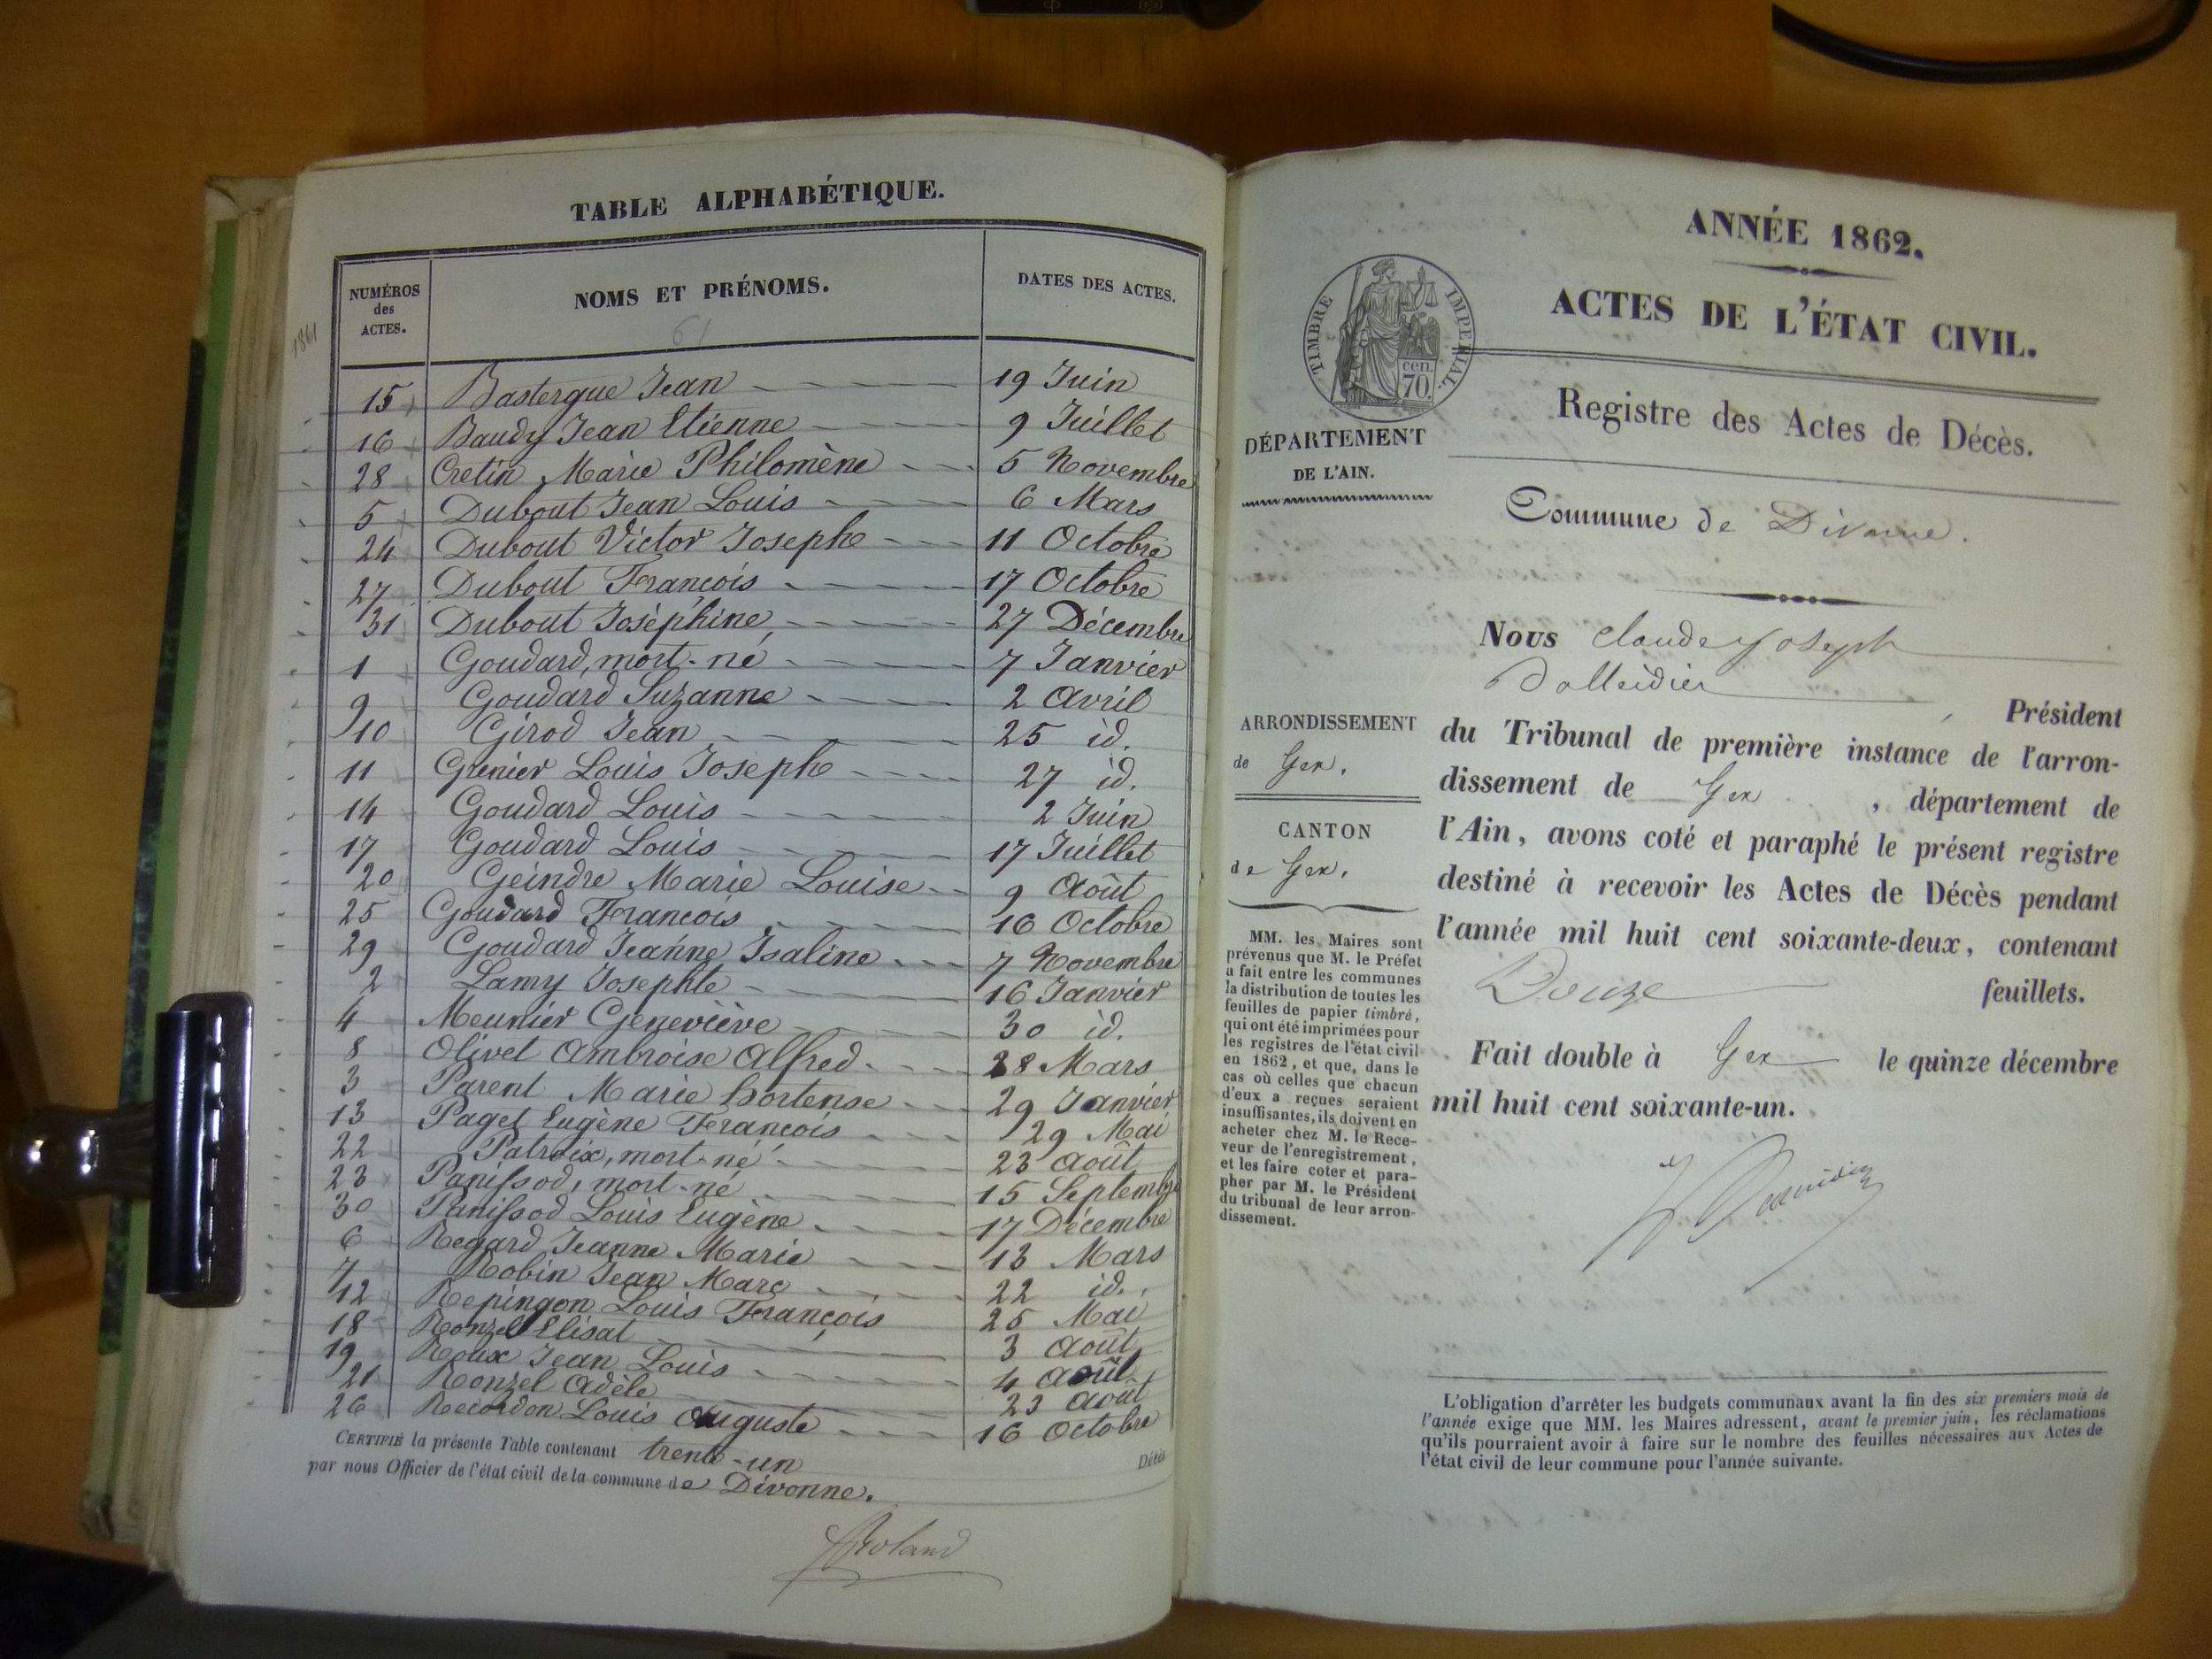 TABLE ALPHABÉTIQUE.
1861
NUMÉROS
des
ACTES.
NOMS ET PRÉNOMS.
DATES DES ACTES.
61
15 Bastergue Jean 19 Juin
16 Baudy Jean Etienne 9 Juillet
28 Cretin Marie Philomène 5 Novembre
5 Dubout Jean Louis 6 Mars
24 Dubout Victor Joseph 11 Octobre
27 Dubout François 17 Octobre
31 Dubout Joséphine 27 Décembre
1 Goudard, mort-né 7 Janvier
9 Goudard Suzanne 2 Avril
10 Girod Jean 25 id.
11 Grenier Louis Joseph 27 id.
14 Goudard Louis 2 Juin
17 Goudard Louis 17 Juillet
20 Geindre Marie Louise 9 Août
25 Goudard François 16 Octobre
29 Goudard Jeanne Isaline 7 Novembre
2 Lamy Josephte 16 Janvier
4 Meunier Geneviève 30 id.
8 Olivet Ambroise Alfred 28 Mars
3 Parent Marie hortense 29 Janvier
13 Paget Eugène François 29 Mai
22 Patroix, mort-né 23 Août
23 Panissod, mort-né 15 Septembre
30 Panissod Louis Eugène 17 Décembre
6 Regard Jeanne Marie 13 Mars
7 Robin Jean Marc 22 id.
12 Repingon Louis François 25 Mai
18 Ronzel Elisat 3 Août
19 Roux Jean Louis 4 Août
21 Ronzel Adèle 23 Août
26 Recordon Louis Auguste 16 Octobre
CERTIFIÉ la présente Table contenant trente-un
par nous Officier de l'état civil de la commune de Divonne.
Roland
ANNÉE 1862.
ACTES DE L'ÉTAT CIVIL.
TIMBRE IMPÉRIAL.
cen.
70.
Registre des Actes de Décès.
DÉPARTEMENT
DE L'AIN.
Commune de Divonne.
Nous Claude Joseph
, Président
ARRONDISSEMENT
de Gex.
CANTON
de Gex.
du Tribunal de première instance de l'arron-
dissement de Gex , département de
l'Ain, avons coté et paraphé le présent registre
destiné à recevoir les Actes de Décès pendant
l'année mil huit cent soixante-deux, contenant
Douze feuillets.
Fait double à Gex le quinze décembre
mil huit cent soixante-un.
MM. les Maires sont
prévenus que M. le Préfet
a fait entre les communes
la distribution de toutes les
feuilles de papier timbré,
qui ont été imprimées pour
les registres de l'état civil
en 1862, et que, dans le
cas où celles que chacun
d'eux a reçues seraient
insuffisantes, ils doivent en
acheter chez M. le Rece-
veur de l'enregistrement,
et les faire coter et para-
pher par M. le Président
du tribunal de leur arron-
dissement.
L'obligation d'arrêter les budgets communaux avant la fin des six premiers mois de
l'année exige que MM. les Maires adressent, avant le premier juin, les réclamations
qu'ils pourraient avoir à faire sur le nombre des feuilles nécessaires aux Actes de
l'état civil de leur commune pour l'année suivante.